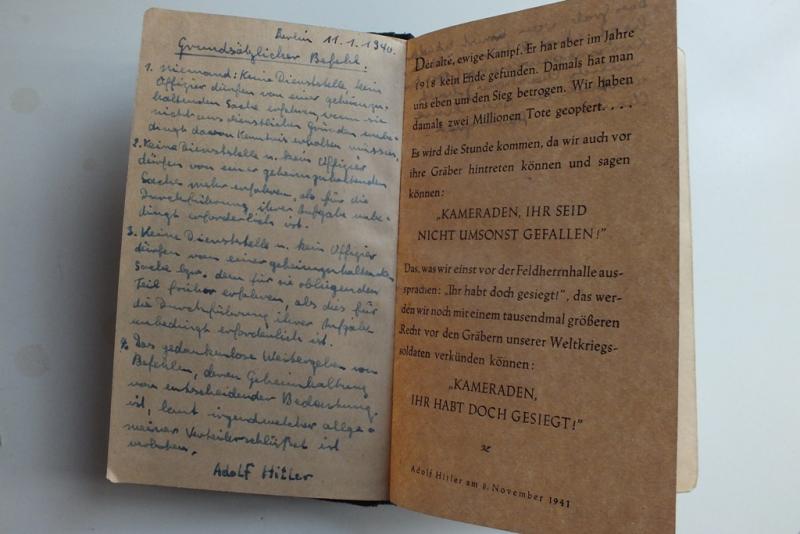 Berlin 11.1.1940.
Grundsätzlicher Befehl:
1. Niemand: Keine Dienststelle, kein
Offizier dürfen von einer geheimzu-
haltenden Sache erfahren, wenn sie
nicht aus dienstlichen Gründen unbe-
dingt davon Kenntnis erhalten müssen.
2. Keine Dienststelle u. kein Offizier
dürfen von einer geheimzuhaltenden
Sache mehr erfahren, als für die
Durchführung ihrer Aufgabe unbe-
dingt erforderlich ist.
3. Keine Dienststelle u. kein Offizier
dürfen von einer geheimzuhaltenden
Sache bzw. dem für sie obliegenden
Teil früher erfahren, als dies für
die Durchführung ihrer Aufgabe
unbedingt erforderlich ist.
4. Das gedankenlose Weitergeben von
Befehlen, deren Geheimhaltung
von entscheidender Bedeutung
ist, laut irgendwelcher allge-
meiner Verteilerschlüssel ist
verboten.
Adolf Hitler
Der alte, ewige Kampf. Er hat aber im Jahre
1918 kein Ende gefunden. Damals hat man
uns eben um den Sieg betrogen. Wir haben
damals zwei Millionen Tote geopfert. . . .
Es wird die Stunde kommen, da wir auch vor
ihre Gräber hintreten können und sagen
können:
„KAMERADEN, IHR SEID
NICHT UMSONST GEFALLEN!"
Das, was wir einst vor der Feldherrnhalle aus-
sprachen: „Ihr habt doch gesiegt!", das wer-
den wir noch mit einem tausendmal größeren
Recht vor den Gräbern unserer Weltkriegs-
soldaten verkünden können:
„KAMERADEN,
IHR HABT DOCH GESIEGT!"
Adolf Hitler am 8. November 1941